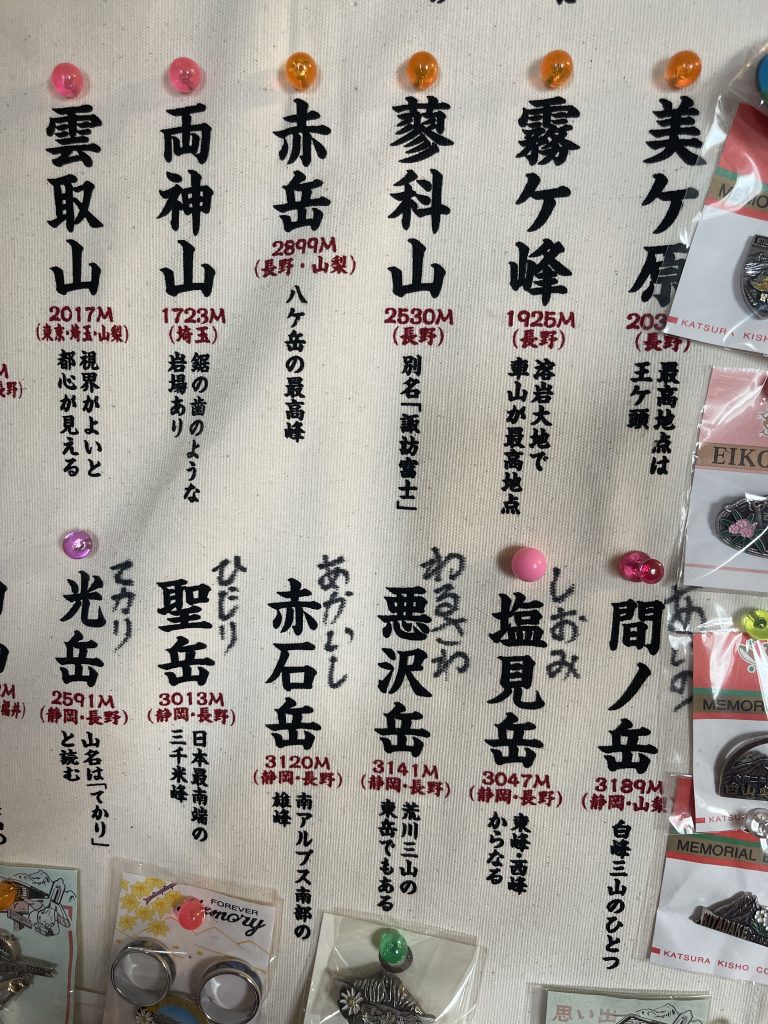 美ケ原
203
(長野)
最高地点は
王ケ頭
霧ケ峰
1925M
(長野)
溶岩大地で
車山が最高地点
蓼科山
2530M
(長野)
別名「諏訪富士」
赤岳
2899M
(長野・山梨)
八ケ岳の最高峰
両神山
1723M
(埼玉)
鋸の歯のような
岩場あり
雲取山
2017M
(東京・埼玉・山梨)
視界がよいと
都心が見える
間ノ岳
あいの
3189M
(静岡・山梨
白峰三山のひとつ
塩見岳
しおみ
3047M
(静岡・長野)
東峰・西峰
からなる
悪沢岳
わるさわ
3141M
(静岡・長野)
荒川三山の
東岳でもある
赤石岳
あかいし
3120M
(静岡・長野)
南アルプス南部の
雄峰
聖岳
ひじり
3013M
(静岡・長野)
日本最南端の
三千米峰
光岳
てかり
2591M
(静岡・長野)
山名は「てかり」
と読む
KATSURA KISHO
EIKO
MEMORIAL
KATSURA
MEMORIAL
KATSURA KISHO CO
FOREVER
Memory
思い出